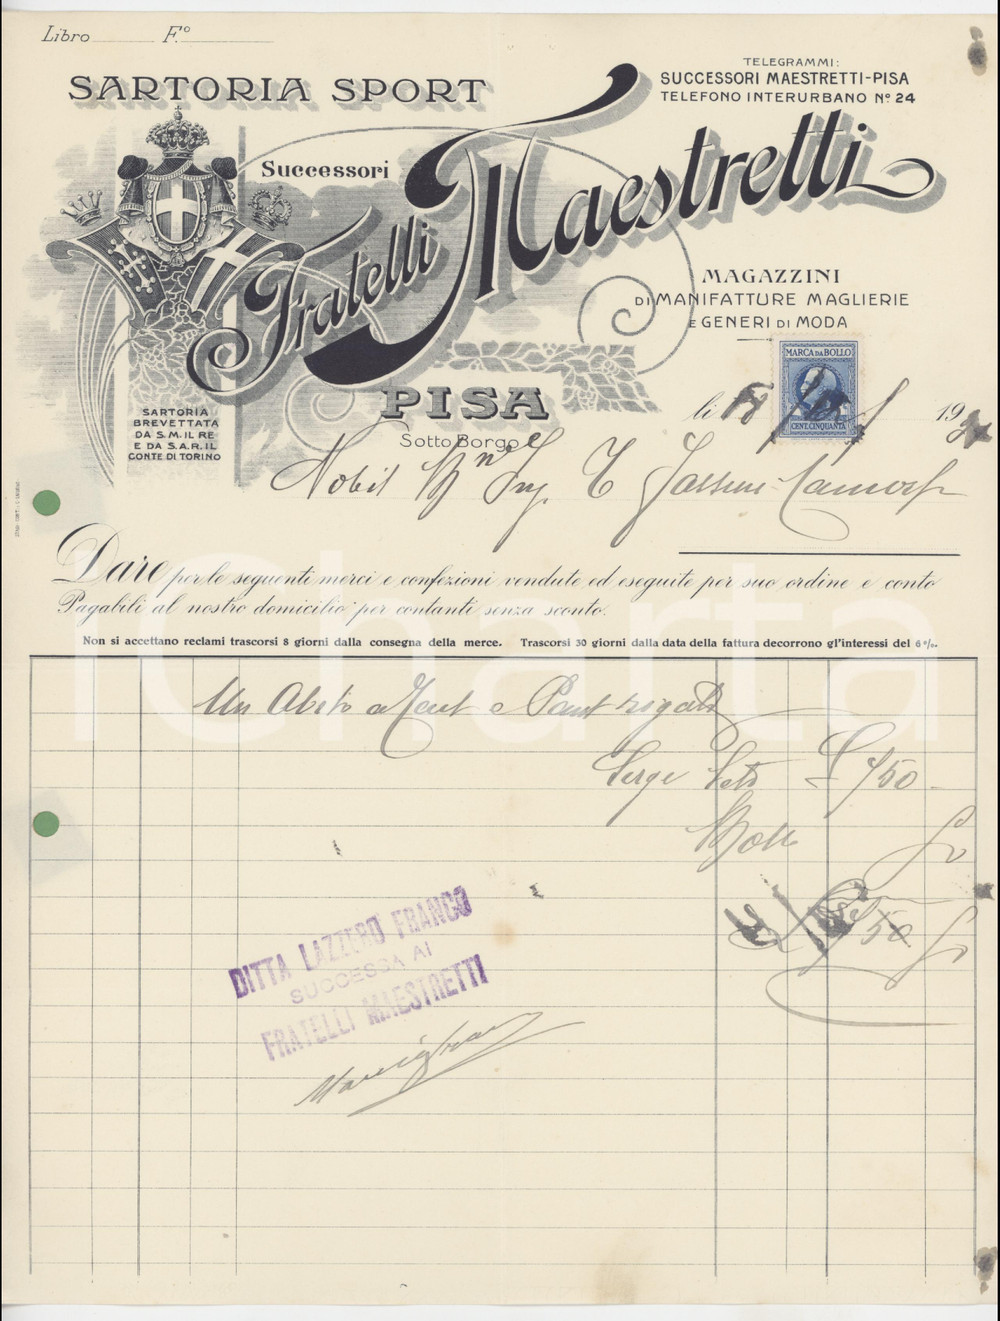 Libro F.º
SARTORIA SPORT
TELEGRAMMI:
SUCCESSORI MAESTRETTI-PISA
TELEFONO INTERURBANO Nº 24
Successori
Fratelli Maestretti
MAGAZZINI
DI MANIFATTURE MAGLIERIE
E GENERI DI MODA
MARCA DA BOLLO
CENT. CINQUANTA
PISA
Sotto Borgo
SARTORIA
BREVETTATA
DA S.M. IL RE
E DA S.A.R. IL
CONTE DI TORINO
li 19
Nobil Ing.
Dare per le seguenti merci e confezioni vendute ed eseguite per suo ordine e conto
Pagabili al nostro domicilio per contanti senza sconto.
Non si accettano reclami trascorsi 8 giorni dalla consegna della merce. Trascorsi 30 giorni dalla data della fattura decorrono gl'interessi del 6%.
iCharta
Un Abito a e Pant rigati
Serge Seta £ 750
Bollo
DITTA LAZZERO FRANCO
SUCCESSA AI
FRATELLI MAESTRETTI